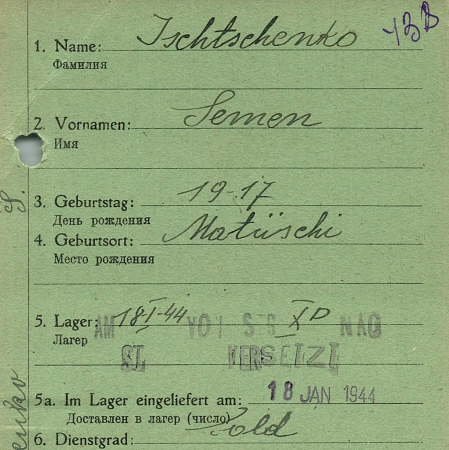 1. Name: Ischtschenko
Фамилия
2. Vornamen: Semen
Имя
3. Geburtstag: 19-17
День рождения
4. Geburtsort: Matüschi
Место рождения
5. Lager: 18 I-44 XD
Лагер
VERSETZT
5a. Im Lager eingeliefert am: 18 JAN 1944
Доставлен в лагер (число)
6. Dienstgrad: Sold